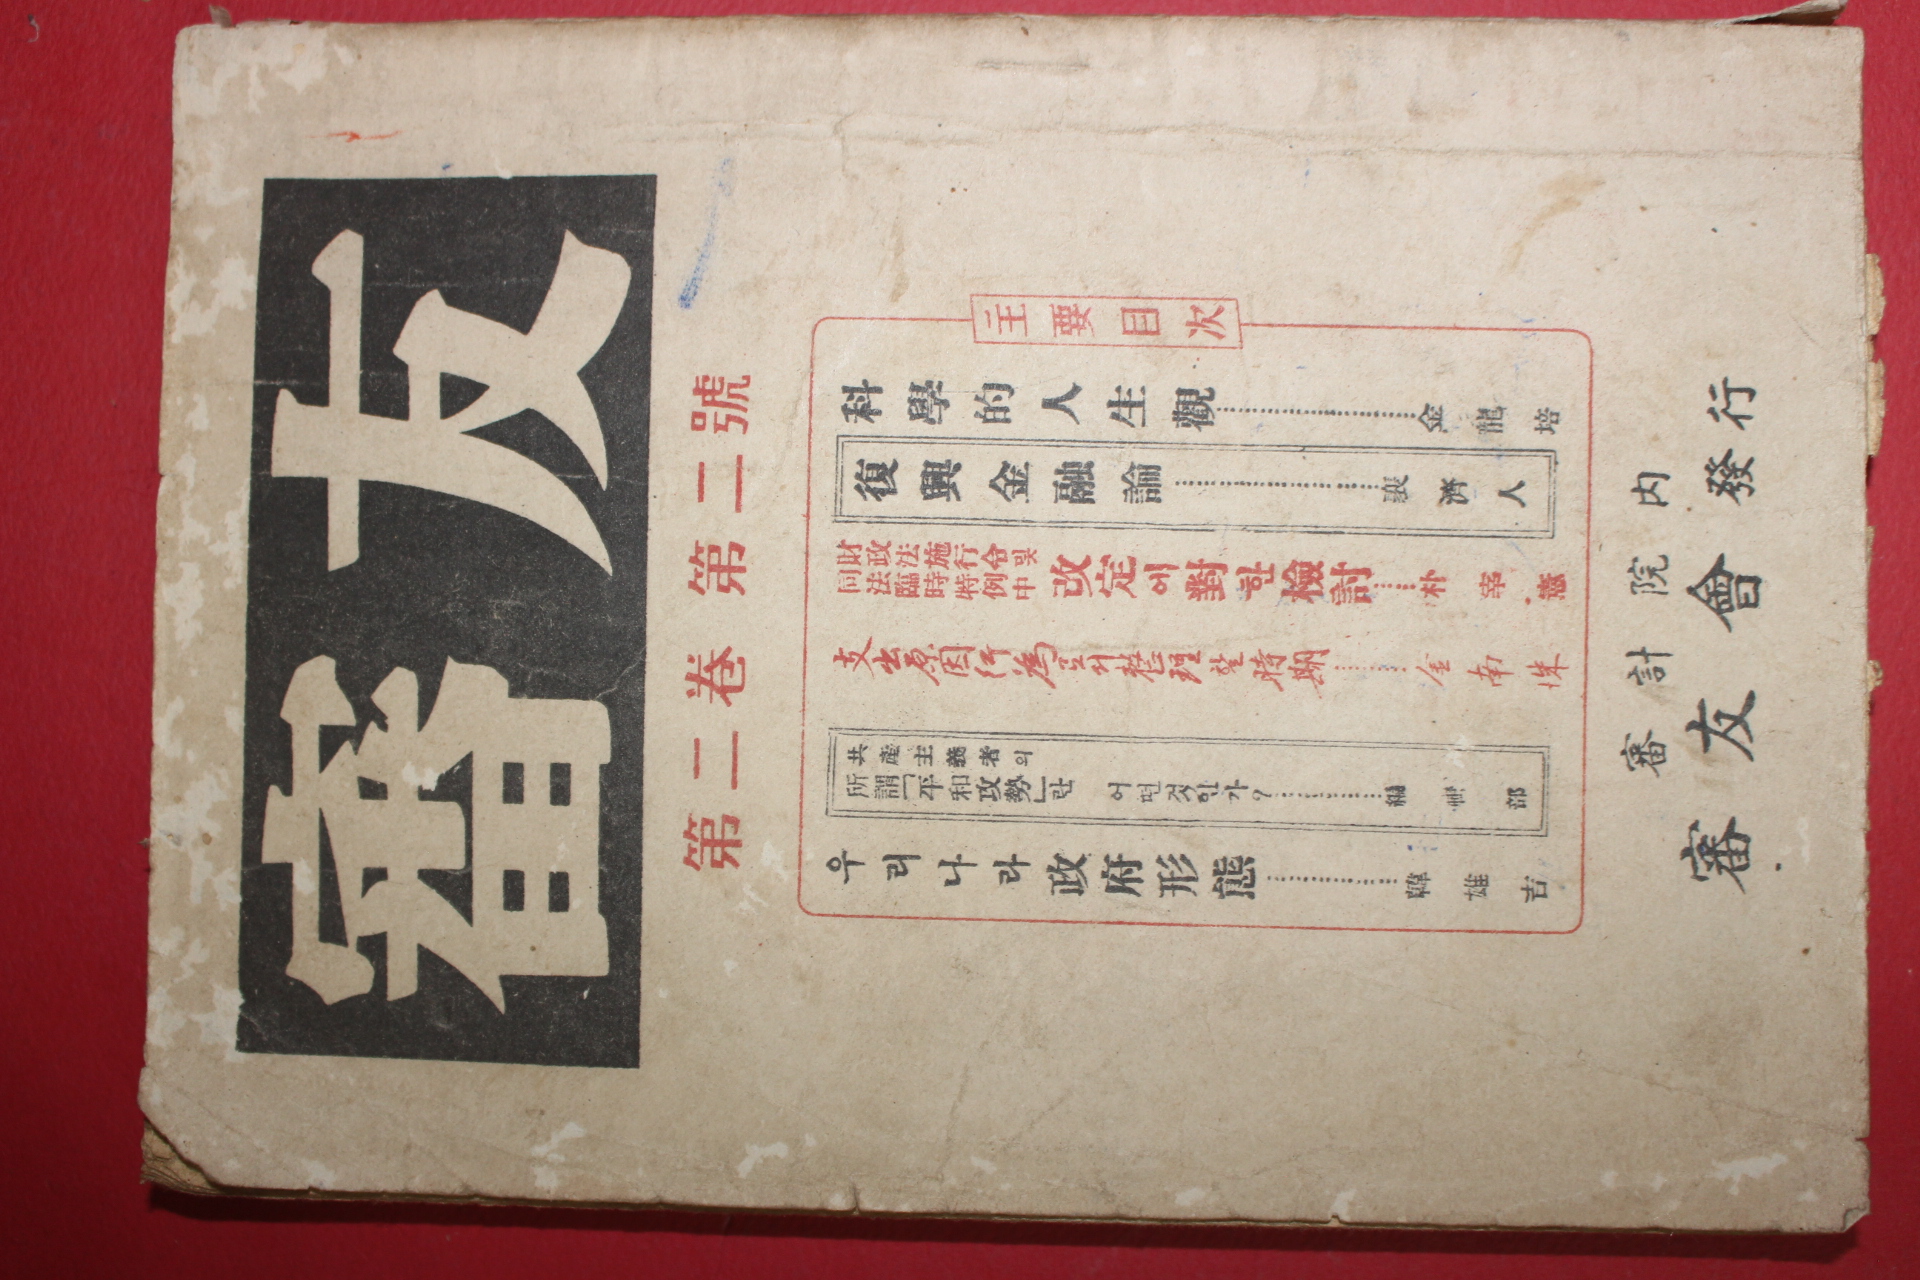 審友
第二卷 第二號
主要目次
科學的人生觀 金龍培
復興金融論 裵濟人
財政法施行令 및
同法臨時特例中
改定에對한檢討 朴宰
支出原因行爲의整理할時期 金南洙
共產主義者의
所謂「平和政勢」란
어떤것인가? 編輯部
우리나라政府形態 韓雄吉
審計院內
審友會發行